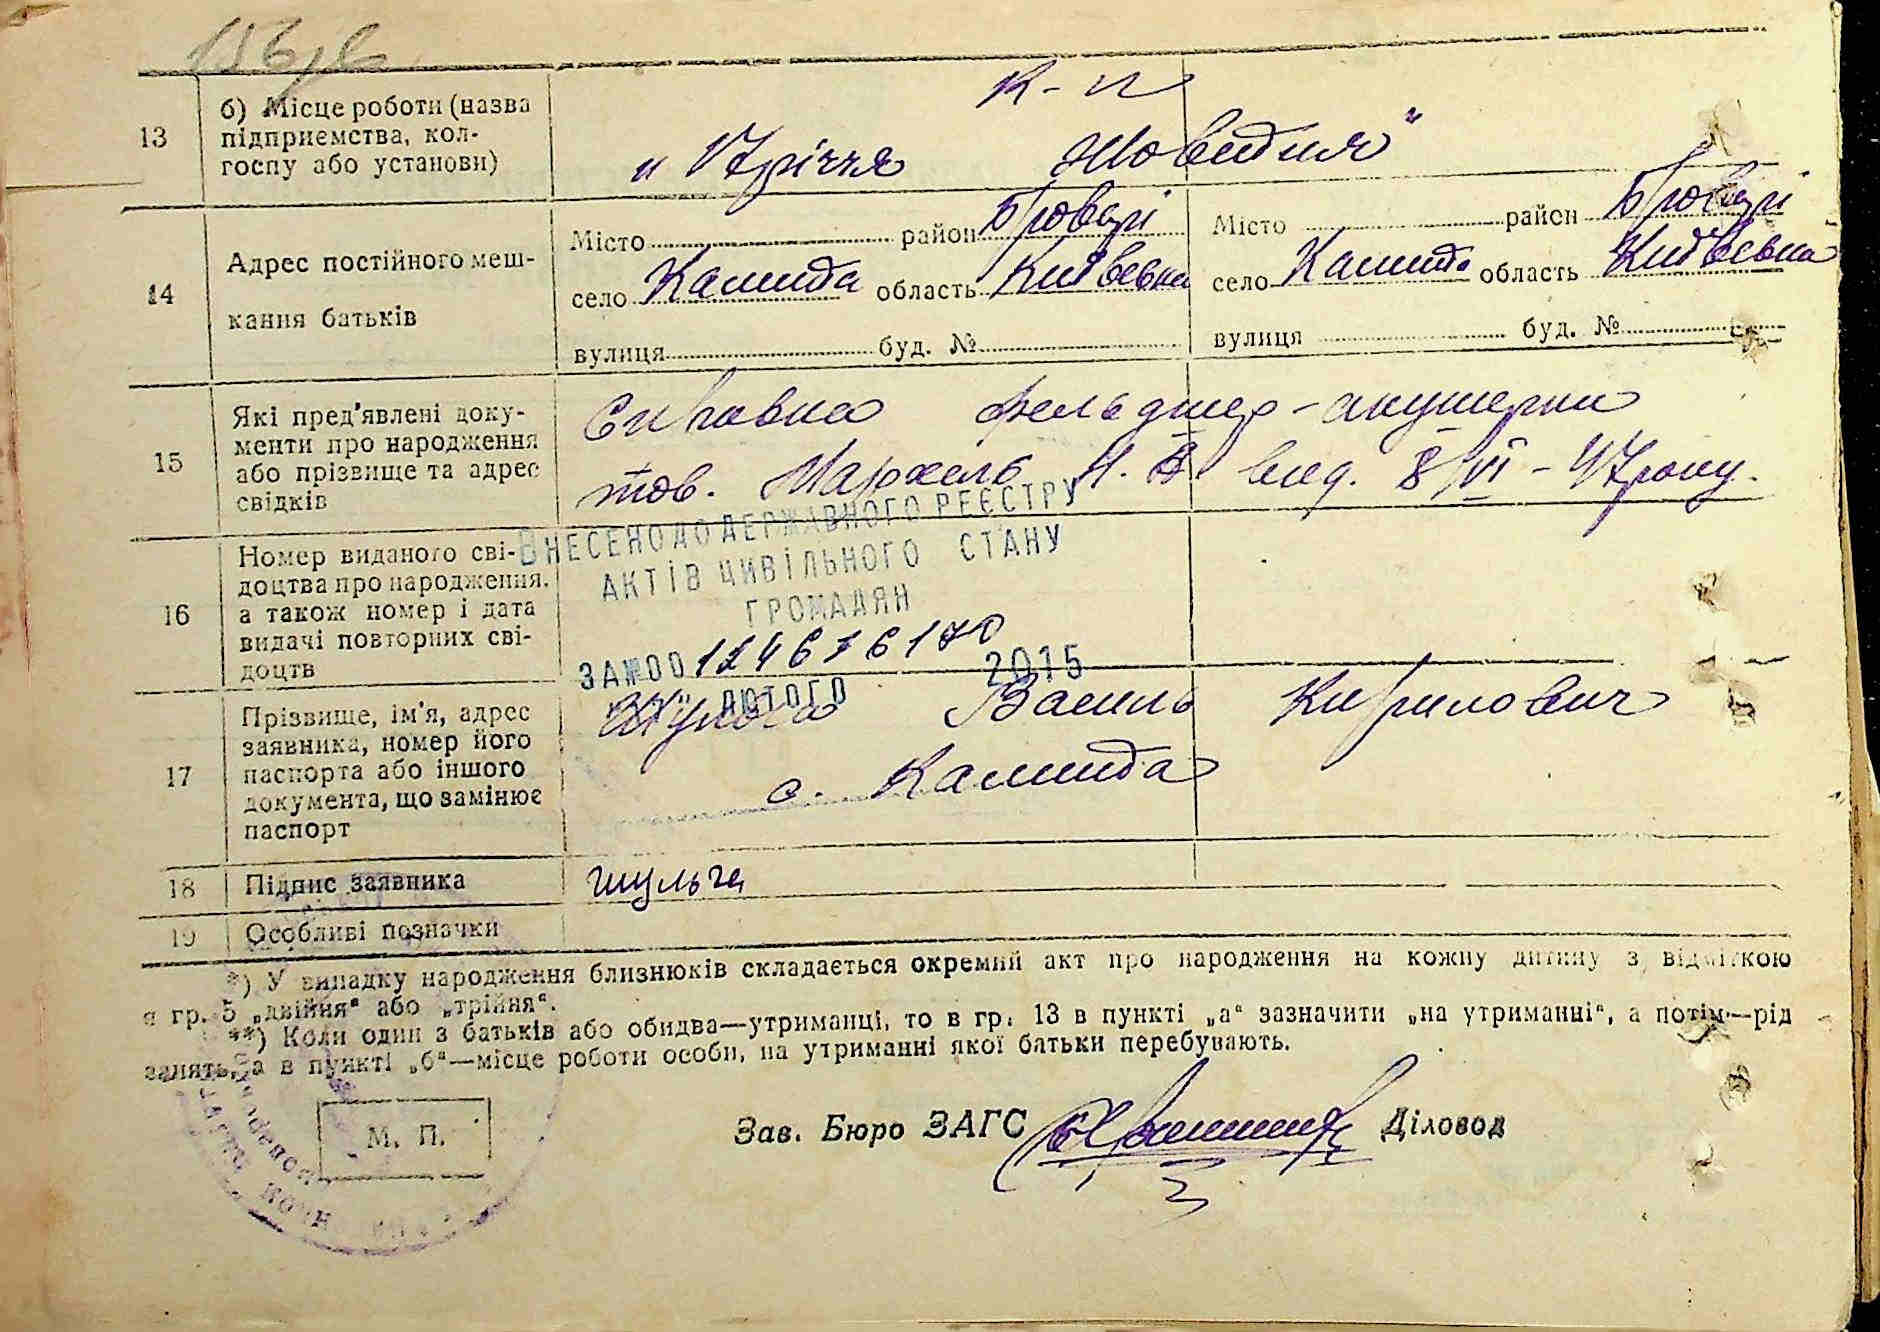 13
б) Місце роботи (назва
підприємства, кол-
госпу або установи)
К-п
„ 17 річчя Жовтня"
14
Адрес постійного меш-
кання батьків
Місто район Броварі
село Калита область Київська
вулиця буд. №
Місто район Броварі
село Калита область Київська
вулиця буд. №
15
Які пред'явлені доку-
менти про народження
або прізвище та адрес
свідків
Справка фельдшер-акушерки
тов. вид. 8/VI - 47 року.
16
Номер виданого сві-
доцтва про народження,
а також номер і дата
видачі повторних сві-
доцтв
ВНЕСЕНО ДО ДЕРЖАВНОГО РЕЄСТРУ
АКТІВ ЦИВІЛЬНОГО СТАНУ
ГРОМАДЯН
ЗА №00
ЛЮТОГО 2015
17
Прізвище, ім'я, адрес
заявника, номер його
паспорта або іншого
документа, що замінює
паспорт
Шульга Василь Кирилович
с. Калита
18
Підпис заявника
шульга
19
Особливі позначки
*) У випадку народження близнюків складається окремий акт про народження на кожну дитину з відміткою
в гр. 5 „двійня" або „трійня".
**) Коли один з батьків або обидва—утриманці, то в гр. 13 в пункті „а" зазначити „на утриманні", а потім—рід
занять, а в пункті „б"—місце роботи особи, на утриманні якої батьки перебувають.
М. П.
Зав. Бюро ЗАГС Діловод